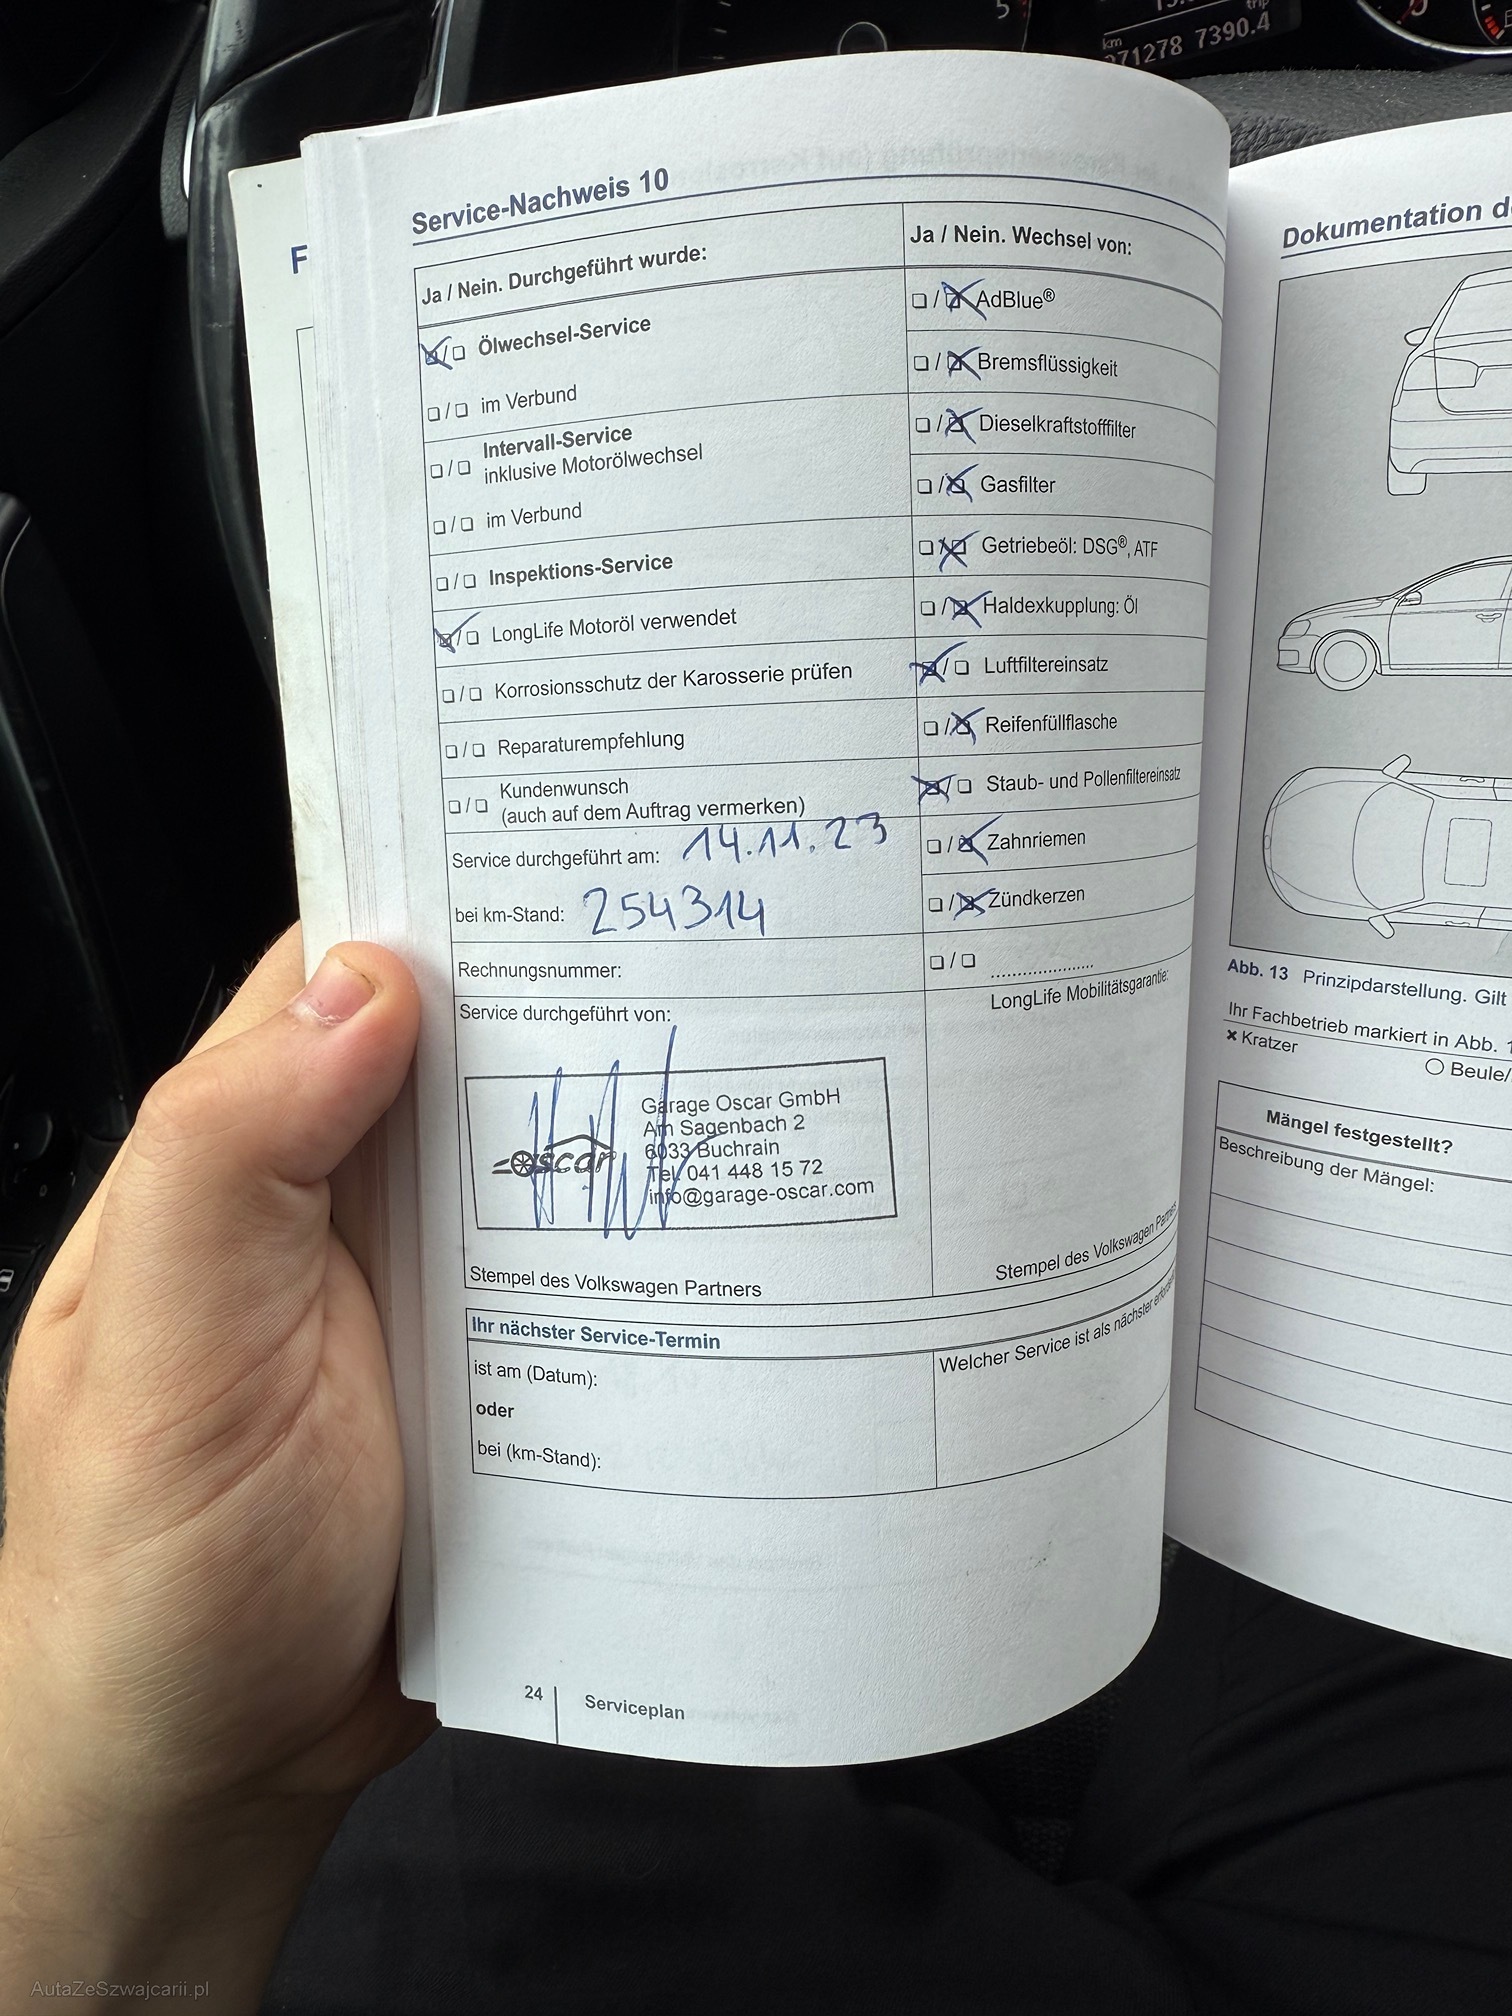 5
trip
km
271278 7390.4
Service-Nachweis 10
Ja / Nein. Durchgeführt wurde:
Ölwechsel-Service
im Verbund
Intervall-Service
inklusive Motorölwechsel
im Verbund
Inspektions-Service
LongLife Motoröl verwendet
Korrosionsschutz der Karosserie prüfen
Reparaturempfehlung
Kundenwunsch
(auch auf dem Auftrag vermerken)
Service durchgeführt am: 14.11.23
bei km-Stand: 254314
Rechnungsnummer:
Service durchgeführt von:
oscar
Garage Oscar GmbH
Am Sagenbach 2
6033 Buchrain
Tel. 041 448 15 72
info@garage-oscar.com
Stempel des Volkswagen Partners
Ja / Nein. Wechsel von:
AdBlue®
Bremsflüssigkeit
Dieselkraftstofffilter
Gasfilter
Getriebeöl: DSG®, ATF
Haldexkupplung: Öl
Luftfiltereinsatz
Reifenfüllflasche
Staub- und Pollenfiltereinsatz
Zahnriemen
Zündkerzen
LongLife Mobilitätsgarantie:
Stempel des Volkswagen Partners
Ihr nächster Service-Termin
ist am (Datum):
oder
bei (km-Stand):
Welcher Service ist als nächster
24
Serviceplan
F
Dokumentation
Abb. 13 Prinzipdarstellung. Gilt
Ihr Fachbetrieb markiert in Abb.
× Kratzer
Beule/
Mängel festgestellt?
Beschreibung der Mängel:
AutaZeSzwajcarii.pl